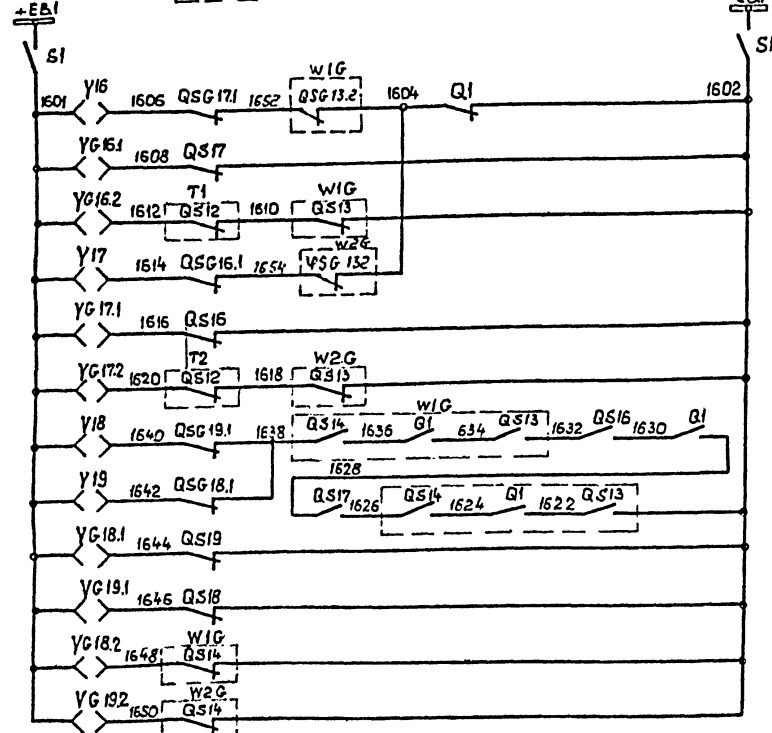 +EB.1
S1 S1
W1G
1601 Y16 1606 QSG17.1 1652 QSG 13.2 1604 Q1 1602
YG16.1 1608 QS17
T1 W1G
YG16.2 1612 QS12 1610 QS13
W2G
Y17 1614 QSG16.1 1654 QSG 132
YG17.1 1616 QS16
T2 W2G
YG17.2 1620 QS12 1618 QS13
W1G
Y18 1640 QSG19.1 1638 QS14 1636 Q1 634 QS13 1632 QS16 1630 Q1
1628
Y19 1642 QSG18.1 QS17 1626 QS14 1624 Q1 1622 QS13
YG18.1 1644 QS19
YG19.1 1646 QS18
W1G
YG18.2 1648 QS14
W2G
YG19.2 1650 QS14